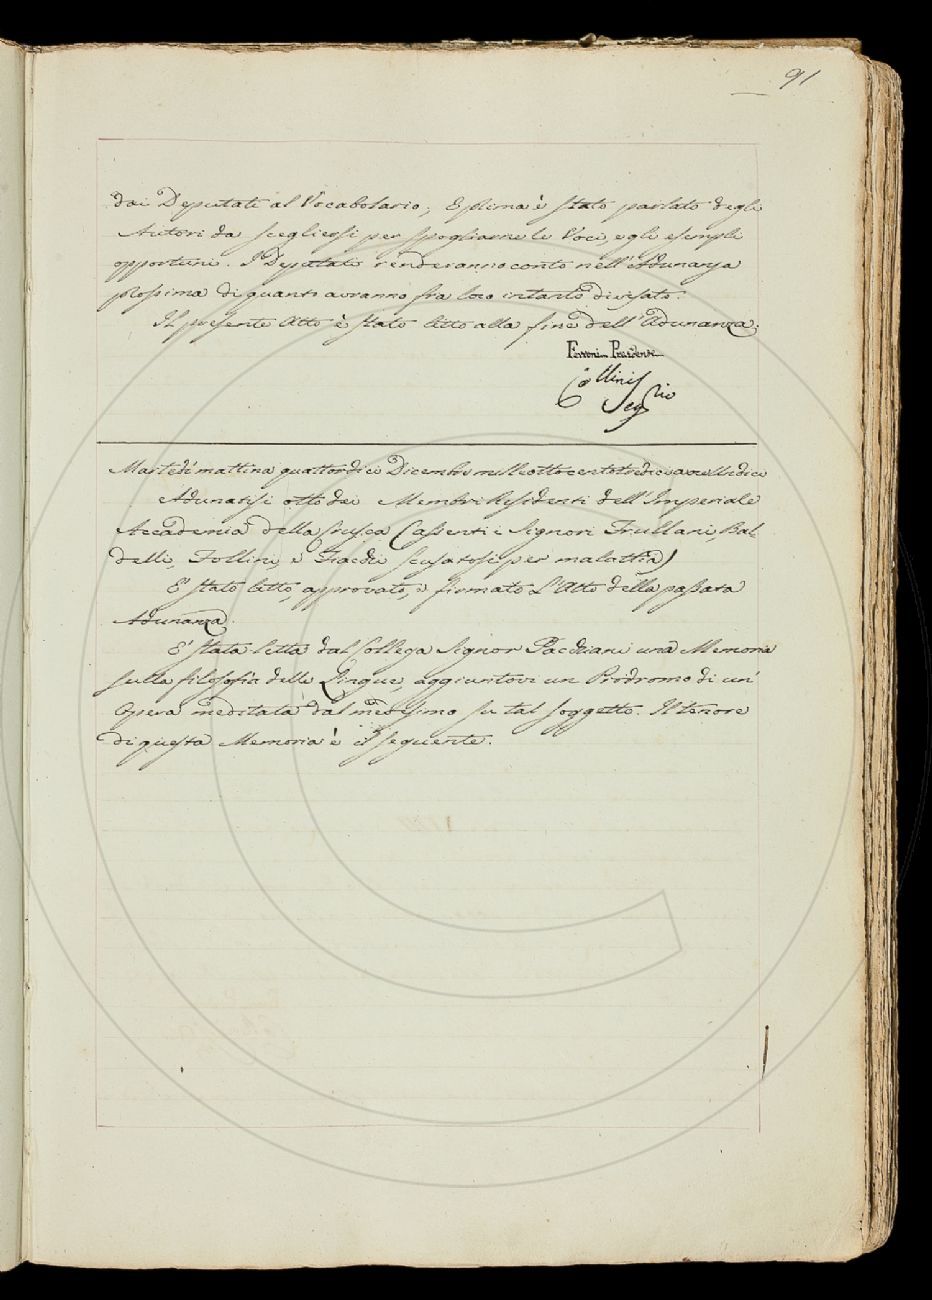 91
dai Deputati al Vocabolario; E prima è stato parlato degli
Autori da scegliersi per spogliarne le Voci, e gli esempli
opportuni. I Deputati renderanno conto nell'Adunanza
prossima di quanto avranno fra loro intanto divisato.
Il presente Atto è stato letto alla fine dell'Adunanza.
Ferroni Presidente
Collini Seg.rio
Martedì mattina quattordici Dicembre milleottocentotredici a ore undici
Adunatisi otto dei Membri Residenti dell'Imperiale
Accademia della Crusca (assenti i Signori Frullani, Bal-
delli, Follini, e Fiacchi scusatosi per malattia)
E' stato letto, approvato, e firmato l'Atto della passata
Adunanza.
E' stata letta dal Collega Signor Pacchiani una Memoria
sulla filosofia delle Lingue, aggiuntovi un Prodromo di un'
Opera meditata dal medesimo su tal soggetto. Il tenore
di questa Memoria è il seguente.